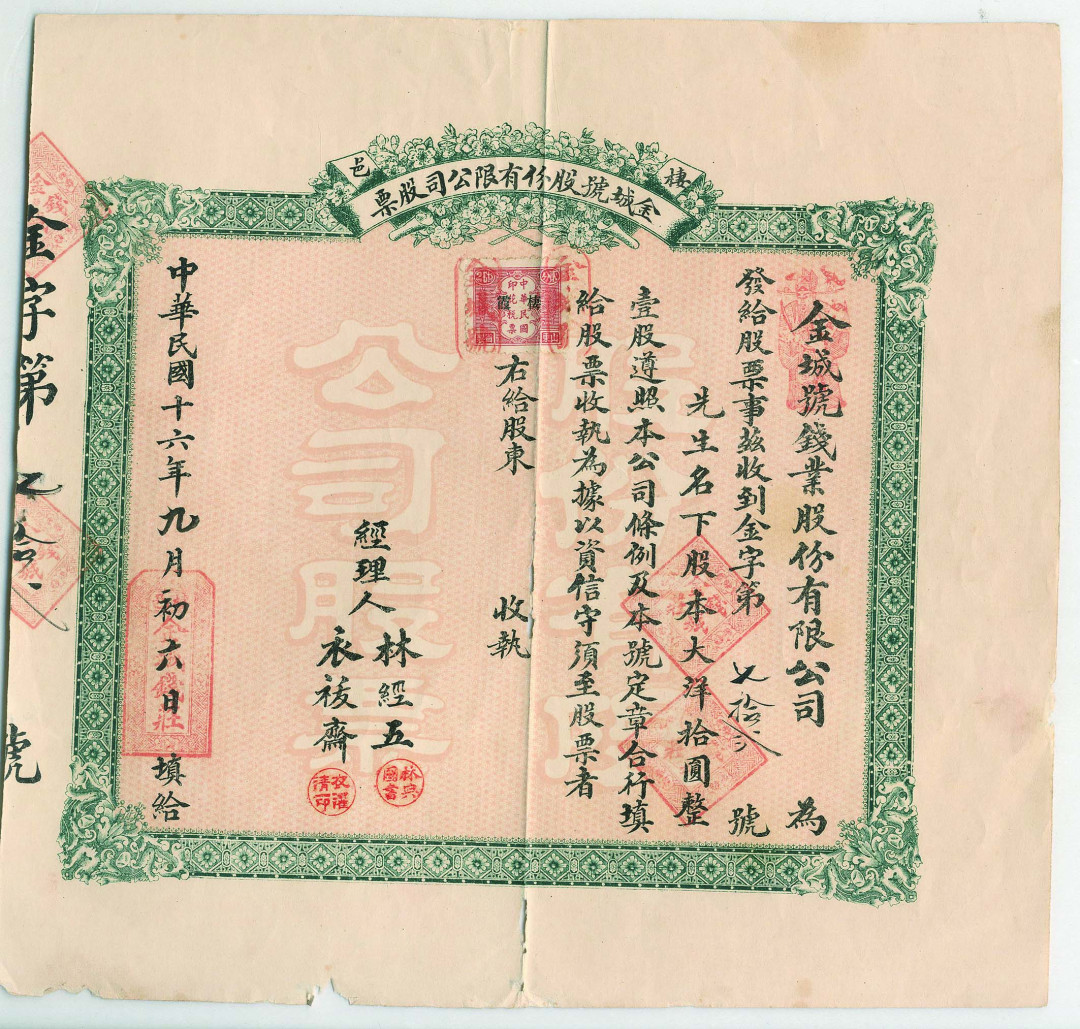 棲邑
金城號股份有限公司股票
金城號錢業股份有限公司 為
發給股票事茲收到金字第 號
先生名下股本大洋拾圓整
壹股遵照本公司條例及本號定章合行填
給股票收執為據以資信守須至股票者
右給股東 收執
經理人 林經五
衣祓齋
中華民國十六年九月初六日填給
金字第 號
中華民國
印花稅票
棲霞
股份有限
公司股票